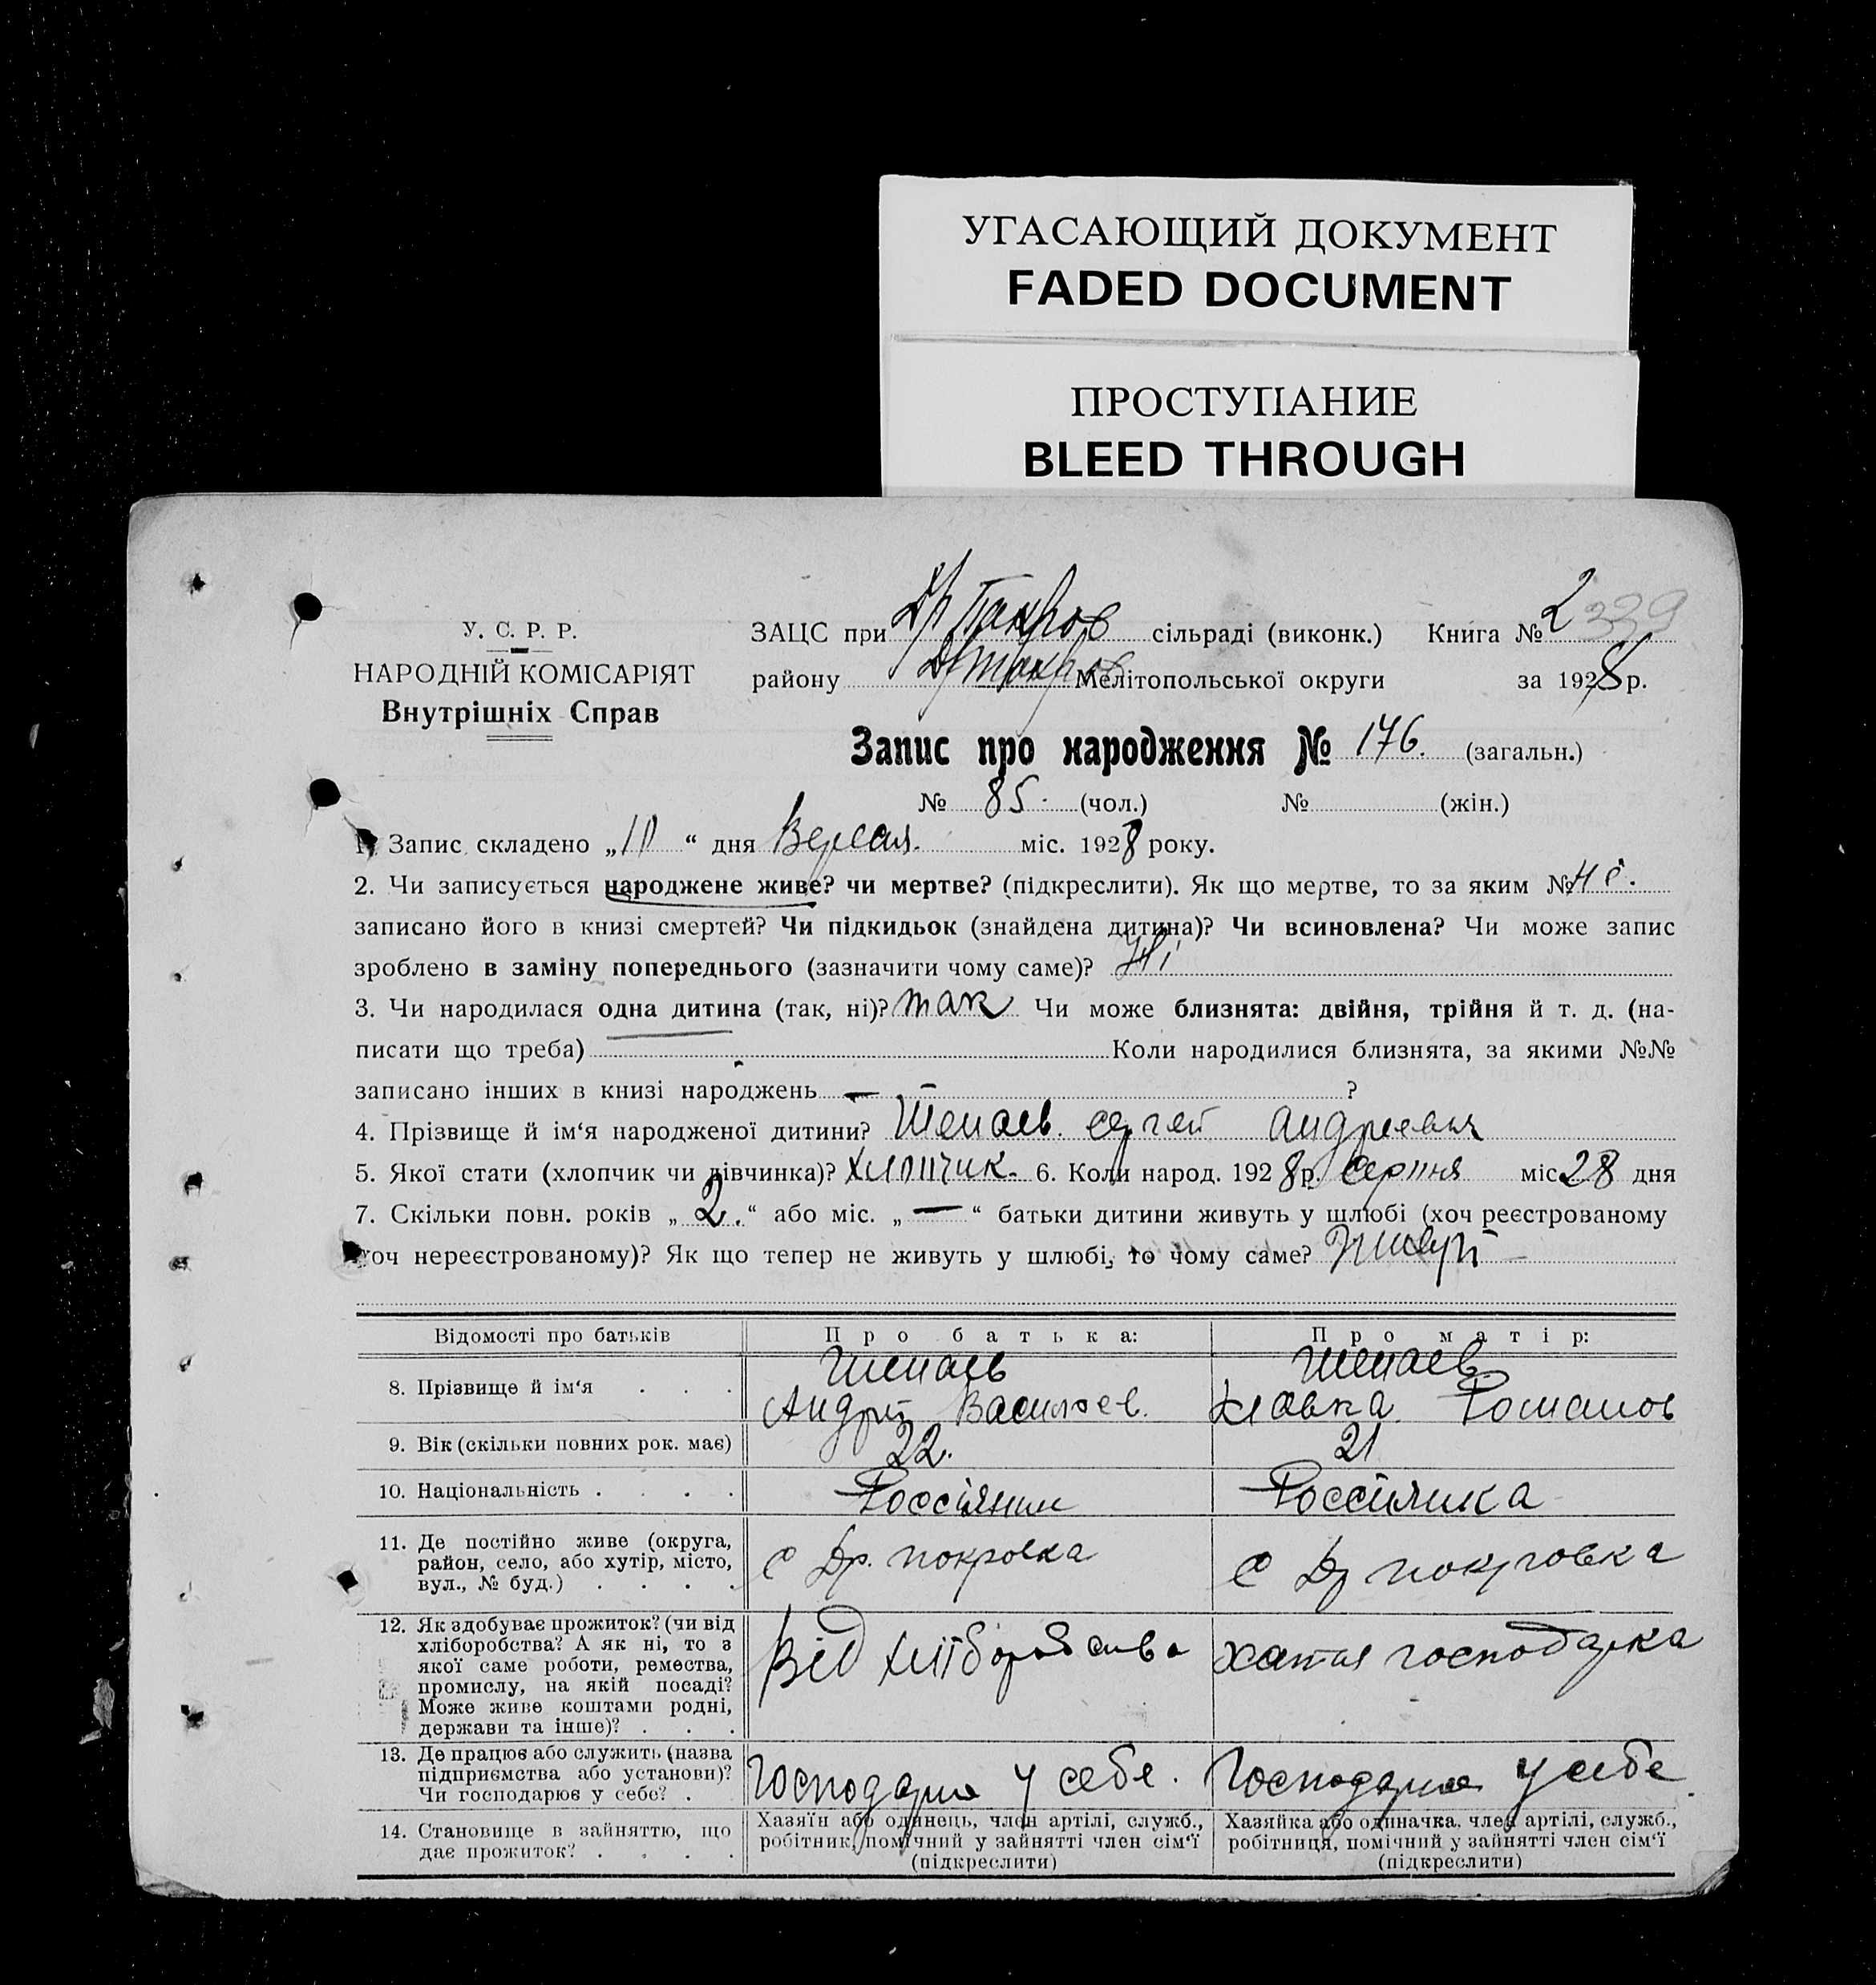 УГАСАЮЩИЙ ДОКУМЕНТ
FADED DOCUMENT
ПРОСТУПАНИЕ
BLEED THROUGH
У. С. Р. Р.
НАРОДНІЙ КОМІСАРІЯТ
Внутрішніх Справ
ЗАЦС при Др Покров сільраді (виконк.) Книга № 2 339
району Мелітопольської округи за 1928 р.
Запис про народження № 176. (загальн.)
№ 85. (чол.) № (жін.)
1. Запис складено „10“ дня Вересня. міс. 1928 року.
2. Чи записується народжене живе? чи мертве? (підкреслити). Як що мертве, то за яким №
записано його в книзі смертей? Чи підкидьок (знайдена дитина)? Чи всиновлена? Чи може запис
зроблено в заміну попереднього (зазначити чому саме)? Ні
3. Чи народилася одна дитина (так, ні)? так Чи може близнята: двійня, трійня й т. д. (на-
писати що треба) Коли народилися близнята, за якими №№
записано інших в книзі народжень — ?
4. Прізвище й ім‘я народженої дитини? Шепаев. Сергей Андреевич
5. Якої стати (хлопчик чи дівчинка)? Хлопчик. 6. Коли народ. 1928 р. Серпня міс 28 дня
7. Скільки повн. років „2.“ або міс. „—“ батьки дитини живуть у шлюбі (хоч реєстрованому
хоч нереєстрованому)? Як що тепер не живуть у шлюбі, то чому саме? Живут
Відомості про батьків Про батька: Про матір:
8. Прізвище й ім‘я . . . Шепаев Андрій Васильев. Шепаев Клавка Романов
9. Вік (скільки повних рок. має) 22. 21
10. Національність . . . . Россіянин Россіянка
11. Де постійно живе (округа,
район, село, або хутір, місто,
вул., № буд.) . . . .
с Др. Покровка с Др Покровка
12. Як здобуває прожиток? (чи від
хліборобства? А як ні, то з
якої саме роботи, ремества,
промислу, на якій посаді?
Може живе коштами родні,
держави та інше)? . . .
Від хліборобства хатня господарка
13. Де працює або служить (назва
підприємства або установи)?
Чи господарює у себе? .
Господарює у себе. Господарює у себе
14. Становище в зайняттю, що
дає прожиток? . . . .
Хазяїн або одинець, член артілі, служб.,
робітник, помічний у зайнятті член сім‘ї
(підкреслити)
Хазяйка або одиначка, член артілі, служб.,
робітниця, помічний у зайнятті член сім‘ї
(підкреслити)